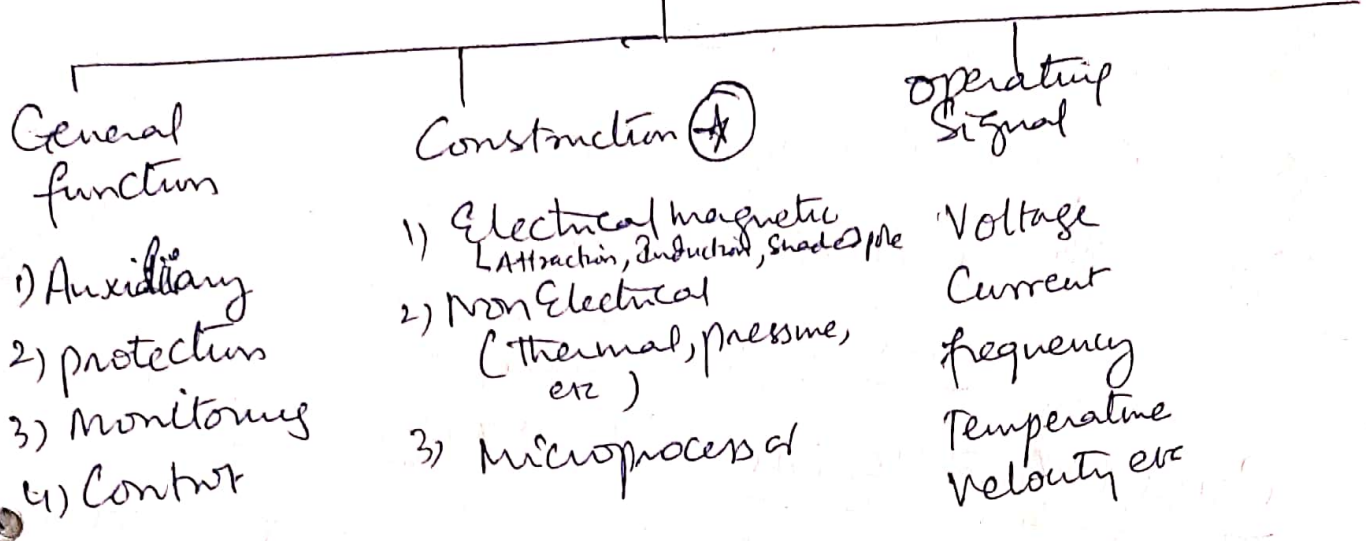 General
function
1) Auxidiiary
2) protection
3) Monitoring
4) Control
Construction
1) Electrical magnetic
Attraction, Induction, Shaded pole
2) Non Electrical
(thermal, pressure,
etc )
3) Microprocessor
Operating
Signal
Voltage
Current
frequency
Temperature
Velocity etc